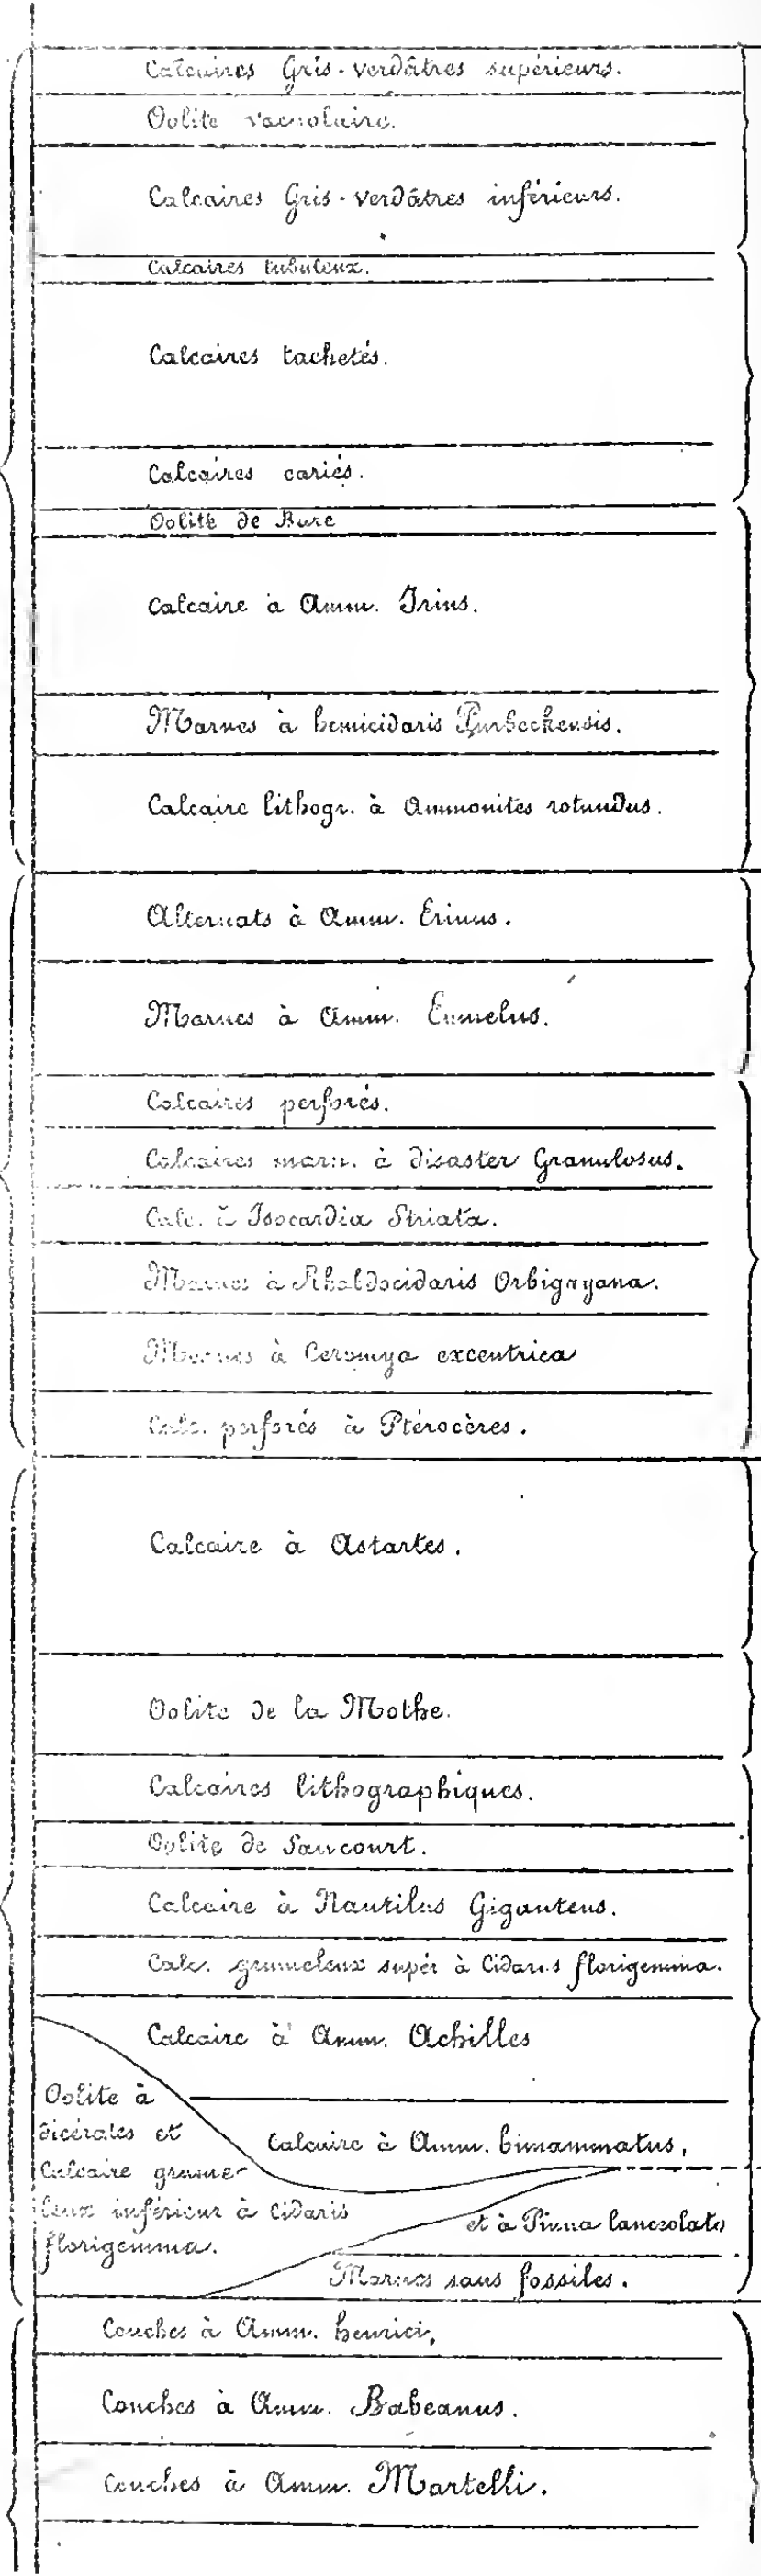 Calcaires Gris-verdâtres supérieurs.
Oolite vacuolaire.
Calcaires Gris-verdâtres inférieurs.
Calcaires tubuleux.
Calcaires tachetés.
Calcaires cariés.
Oolite de Bure
Calcaire à Amm. Irius.
Marnes à hemicidaris Purbeckensis.
Calcaire lithogr. à Ammonites rotundus.
Alternats à Amm. Erinus.
Marnes à Amm. Eumelus.
Calcaires perforés.
Calcaires marn. à disaster Granulosus.
Calc. à Isocardia Striata.
Marnes à Rhabdocidaris Orbignyana.
Marnes à Ceromya excentrica
Calc. perforés à Ptérocères.
Calcaire à Astartes.
Oolite de la Mothe.
Calcaires lithographiques.
Oolite de Saucourt.
Calcaire à Nautilus Giganteus.
Calc. grumeleux supér à Cidaris florigemma.
Calcaire à Amm. Achilles
Oolite à
dicérates et
Calcaire grume-
leux inférieur à Cidaris
florigemma.
Calcaire à Amm. bimammatus,
et à Pinna lanceolata
Marnes sans fossiles.
Couches à Amm. henrici,
Couches à Amm. Babeanus.
Couches à Amm. Martelli.